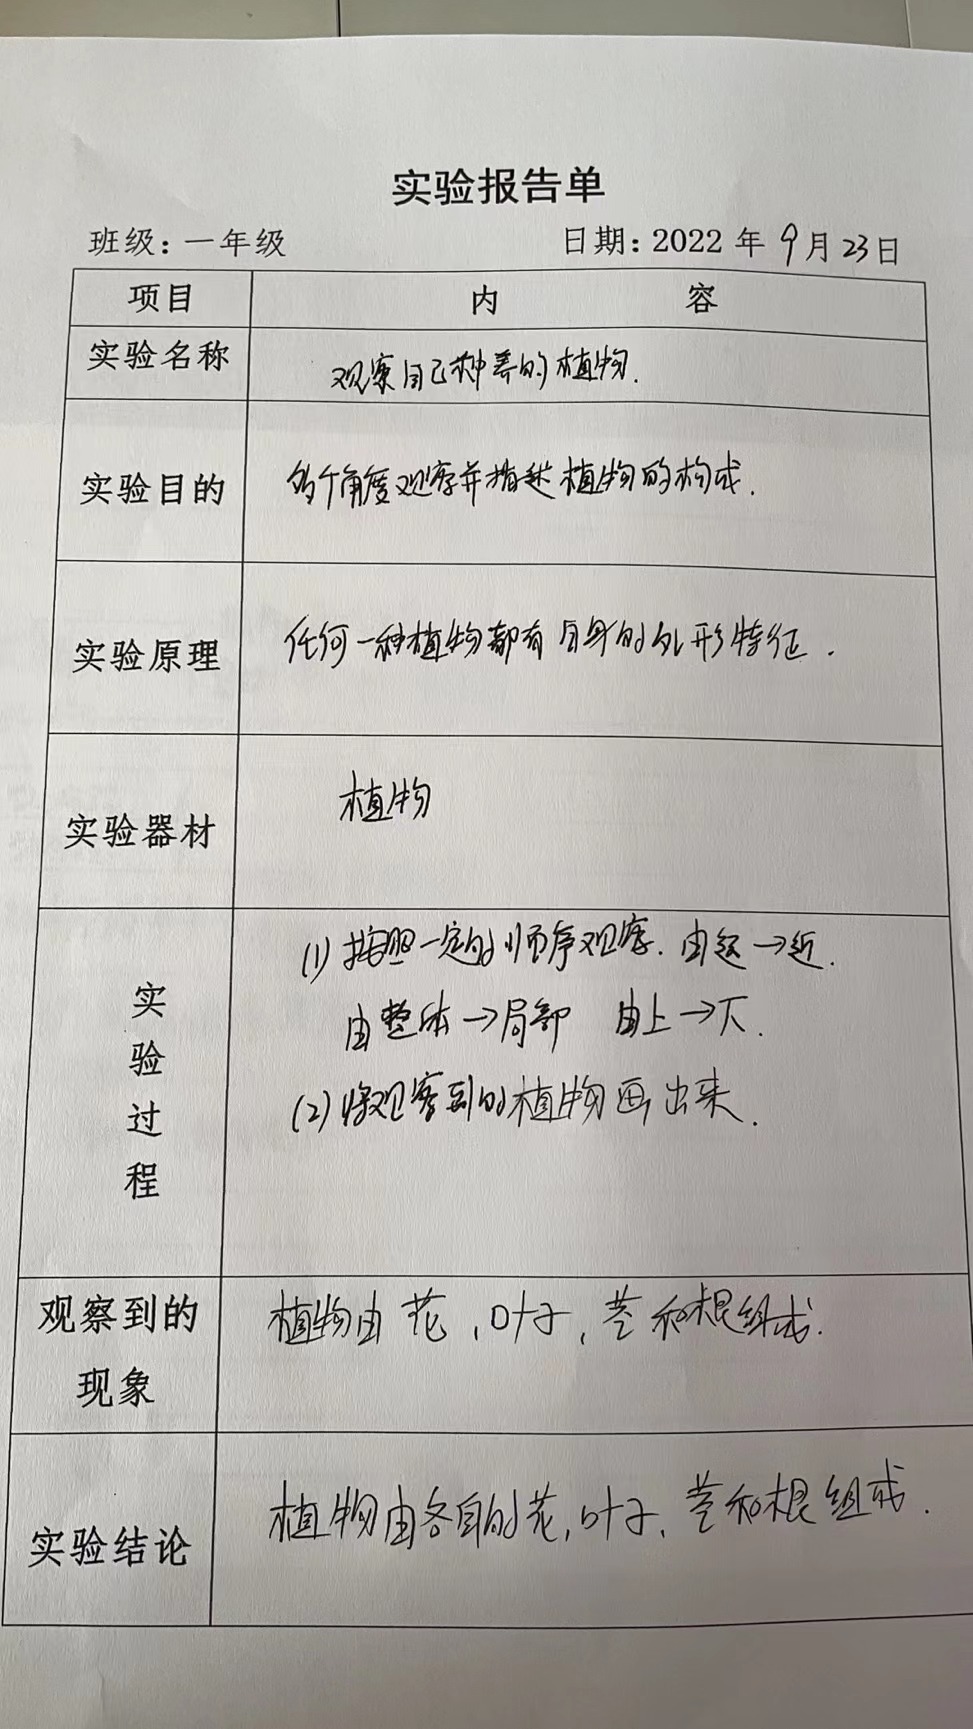 实验报告单
班级：一年级 日期：2022年9月23日
项目 内容
实验名称 观察自己种养的植物.
实验目的 多个角度观察并描述植物的构成.
实验原理 任何一种植物都有自身的外形特征.
实验器材 植物
实验过程 (1) 按照一定的顺序观察. 由远→近.
由整体→局部 由上→下.
(2) 将观察到的植物画出来.
观察到的
现象 植物由花,叶子,茎和根组成.
实验结论 植物由各自的花,叶子,茎和根组成.